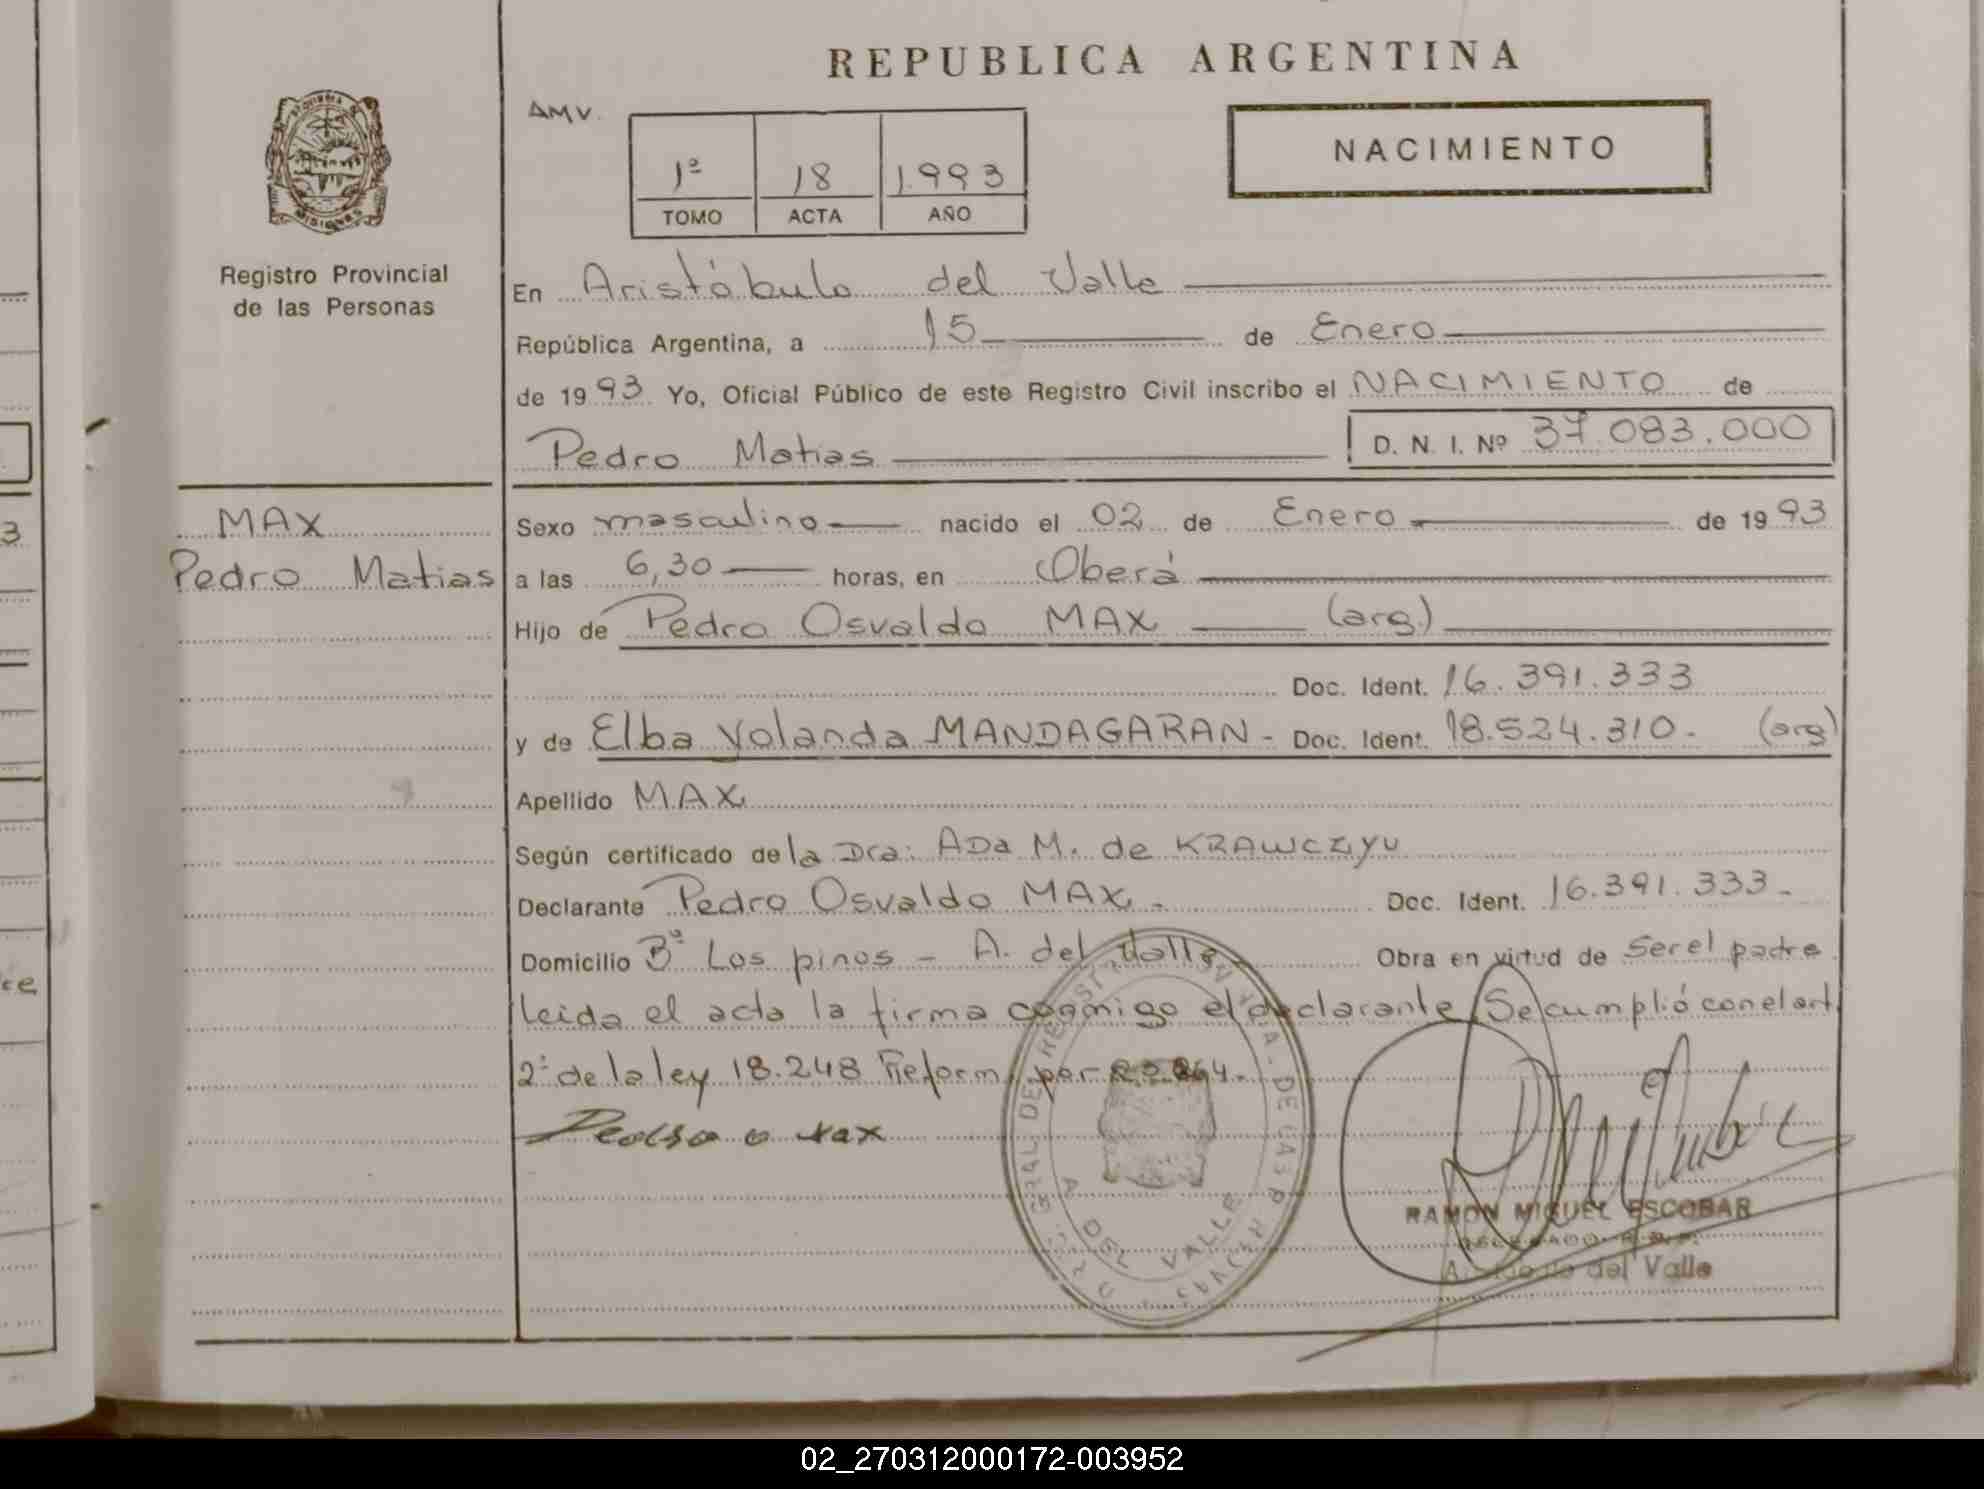 REPUBLICA ARGENTINA
AMV.
1º 18 1.993
TOMO ACTA AÑO
NACIMIENTO
MISIONES
Registro Provincial
de las Personas
En Aristóbulo del Valle
República Argentina, a 15 de Enero
de 1993 Yo, Oficial Público de este Registro Civil inscribo el NACIMIENTO de
Pedro Matias D. N. I. Nº 37.083.000
MAX
Pedro Matias
Sexo masculino nacido el 02 de Enero de 1993
a las 6,30 horas, en Oberá
Hijo de Pedro Osvaldo MAX (arg.)
Doc. Ident. 16.391.333
y de Elba Yolanda MANDAGARAN - Doc. Ident. 18.524.310. (arg)
Apellido MAX
Según certificado de la Dra: ADa M. de KRAWCZYU
Declarante Pedro Osvaldo MAX. - Doc. Ident. 16.391.333 -
Domicilio Bº Los pinos - A. del Valle - Obra en virtud de ser el padre
leida el acta la firma conmigo el declarante. Se cumplió con el art.
2º de la ley 18.248 Reform. por 
Pedro o Max
A. DEL VALLE
RAMON MIGUEL ESCOBAR
DELEGADO R.P.P.
del Valle
02_270312000172-003952